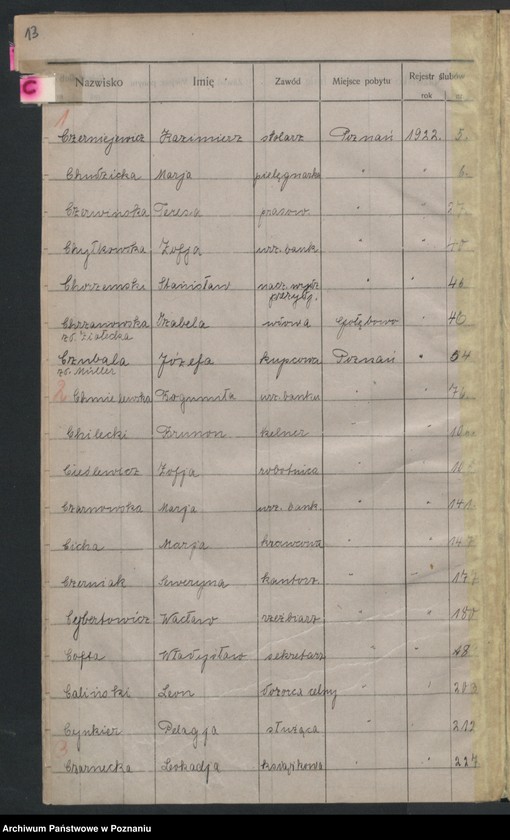 13
C
Nazwisko Imię Zawód Miejsce pobytu Rejestr ślubów
rok nr.
1
Czerniejewicz Kazimierz stolarz Poznań 1922. 5.
Chudzicka Marja pielęgniarka " " 6.
Czerwińska Teresa prasow. " "
Chyłkowska Zofja urz. bank " "
Chorzemski Stanisław " " 46
Chrzanowska Izabela wdowa Gołębowo " 46
zd. Ziałecka
Czubala Józefa kupcowa Poznań " 54
zd. Müller
2 Chmielewska Bogumiła urz. banku " " 76
Chilecki Brunon kelner " "
Cieslewicz Zofja robotnica " "
Czarnowska Marja urz. bank. " " 141
Cicha Marja krawcowa " "
Czerniak Seweryna kantorz. " " 17
Cybertowicz Wacław rzeźbiarz " " 180
Cofta Władysław sekretarz " "
Caliński Leon dozorca celny " " 203
Cynkier Pelagja służąca " " 219
3
Czarnecka Leokadja książkowa " " 227
Archiwum Państwowe w Poznaniu